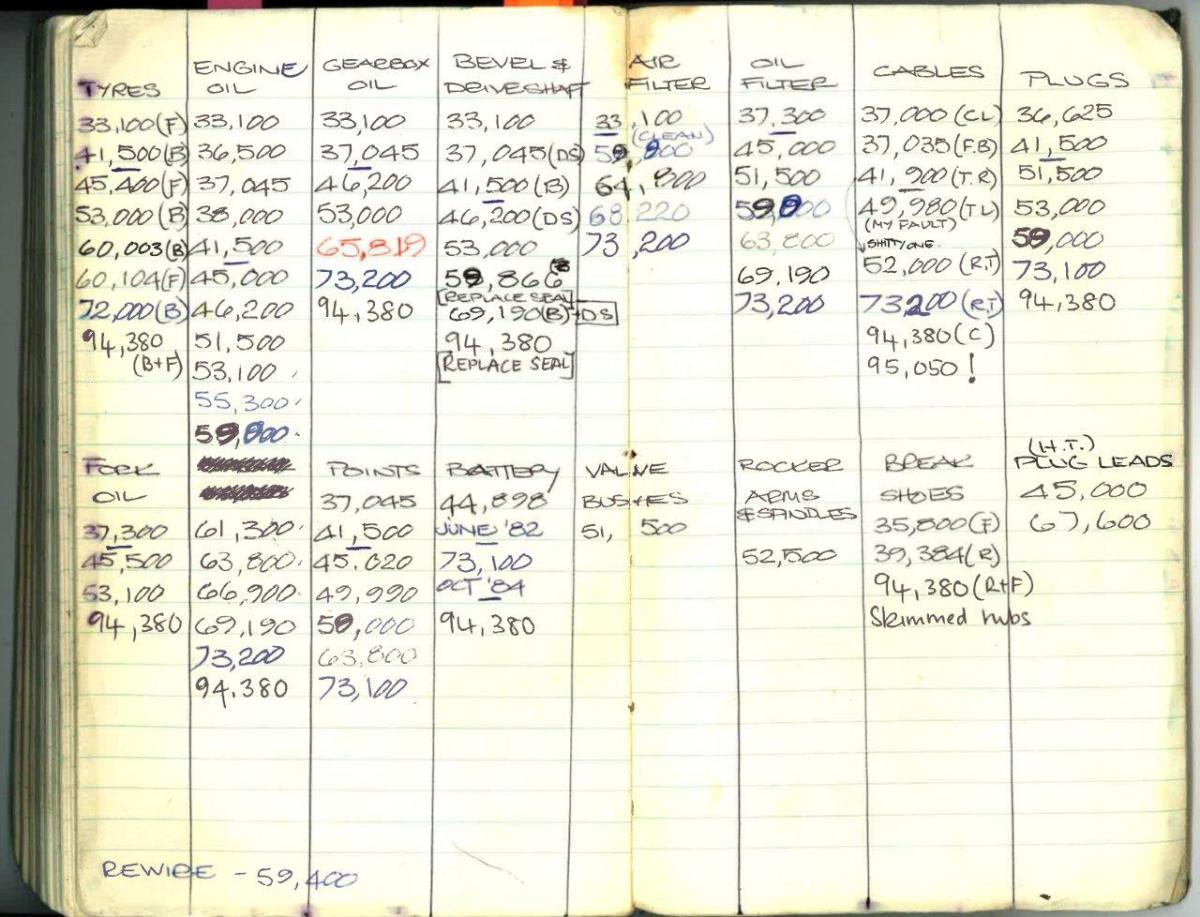 TYRES
33,100(F)
41,500(B)
45,400(F)
53,000(B)
60,003(B)
60,104(F)
72,000(B)
94,380
(B+F)
ENGINE
OIL
33,100
36,500
37,045
38,000
41,500
45,000
46,200
51,500
53,100
55,300
59,000
61,300
63,800
66,900
69,190
73,200
94,380
GEARBOX
OIL
33,100
37,045
46,200
53,000
65,819
73,200
94,380
BEVEL &
DRIVESHAFT
33,100
37,045(DS)
41,500(B)
46,200(DS)
53,000
59,866
[REPLACE SEAL]
69,190(B)+DS
94,380
[REPLACE SEAL]
AIR
FILTER
33,100
(CLEAN)
59,000
64,800
68,220
73,200
OIL
FILTER
37,300
45,000
51,500
59,000
63,800
69,190
73,200
CABLES
37,000(CL)
37,035(F.B)
41,900(T.R)
49,980(TL)
(MY FAULT)
SHITTY ONE
52,000(R.T)
73,200(R.T)
94,380(C)
95,050!
PLUGS
36,625
41,500
51,500
53,000
59,000
73,100
94,380
FORK
OIL
37,300
45,500
53,100
94,380
POINTS
37,045
41,500
45.020
49,990
59,000
63,800
73,100
BATTERY
44,898
JUNE '82
73,100
OCT '84
94,380
VALVE
BUSHES
51,500
ROCKER
ARMS
& SPINDLES
52,500
BREAK
SHOES
35,800(F)
39,384(R)
94,380(R+F)
Skimmed hubs
(H.T.)
PLUG LEADS
45,000
67,600
REWIRE - 59,400